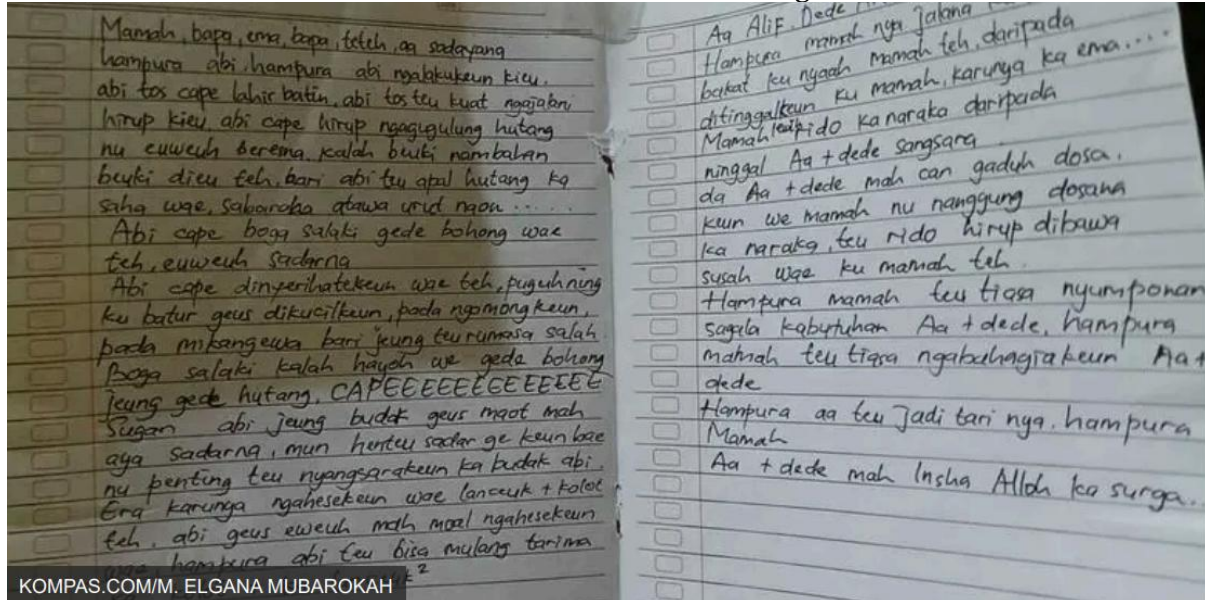 Mamah, bapa, ema, bapa, teteh, aa sadayana
hampura abi, hampura abi ngalakukeun kieu.
abi tos cape lahir batin, abi tos teu kuat ngajalan
hirup kieu, abi cape hirup ngagugulung hutang
nu euweuh berema, kalah beuki nambahan
beuki dieu teh, bari abi teu apal hutang ka
saha wae, sabaraha atawa urut naon .....
Abi cape boga salaki gede bohong wae
teh, euweuh sadarna
Abi cape dinyerihatekeun wae teh, puguhning
ku batur geus dikucilkeun, pada ngomongkeun,
pada mikangewa bari jeung teu rumasa salah
Boga salaki kalah hayoh we gede bohong
jeung gede hutang, CAPEEEEEEEEEEEEEE
Sugan abi jeung budak geus maot mah
aya sadarna, mun henteu sadar ge keun bae
nu penting teu nyangsarakeun ka budak abi.
Era karunya ngahesekeun wae lanceuk + kolot
teh, abi geus euweuh mah moal ngahesekeun
hampura abi teu bisa mulang tarima
Aa Alif, Dede
Hampura mamah nya jalana
bakat ku nyaah mamah teh, daripada
ditinggalkeun ku mamah, karunya ka ema....
Mamah leupido ka naraka daripada
ninggal Aa + dede sangsara
da Aa + dede mah can gaduh dosa.
keun we mamah nu nanggung dosana
ka naraka, teu rido hirup dibawa
susah wae ku mamah teh.
Hampura mamah teu tiasa nyumponan
sagala kabutuhan Aa + dede, hampura
mamah teu tiasa ngabahagiakeun Aa +
dede
Hampura aa teu jadi tari nya, hampura
Mamah
Aa + dede mah Insha Alloh ka surga..
KOMPAS.COM/M. ELGANA MUBAROKAH